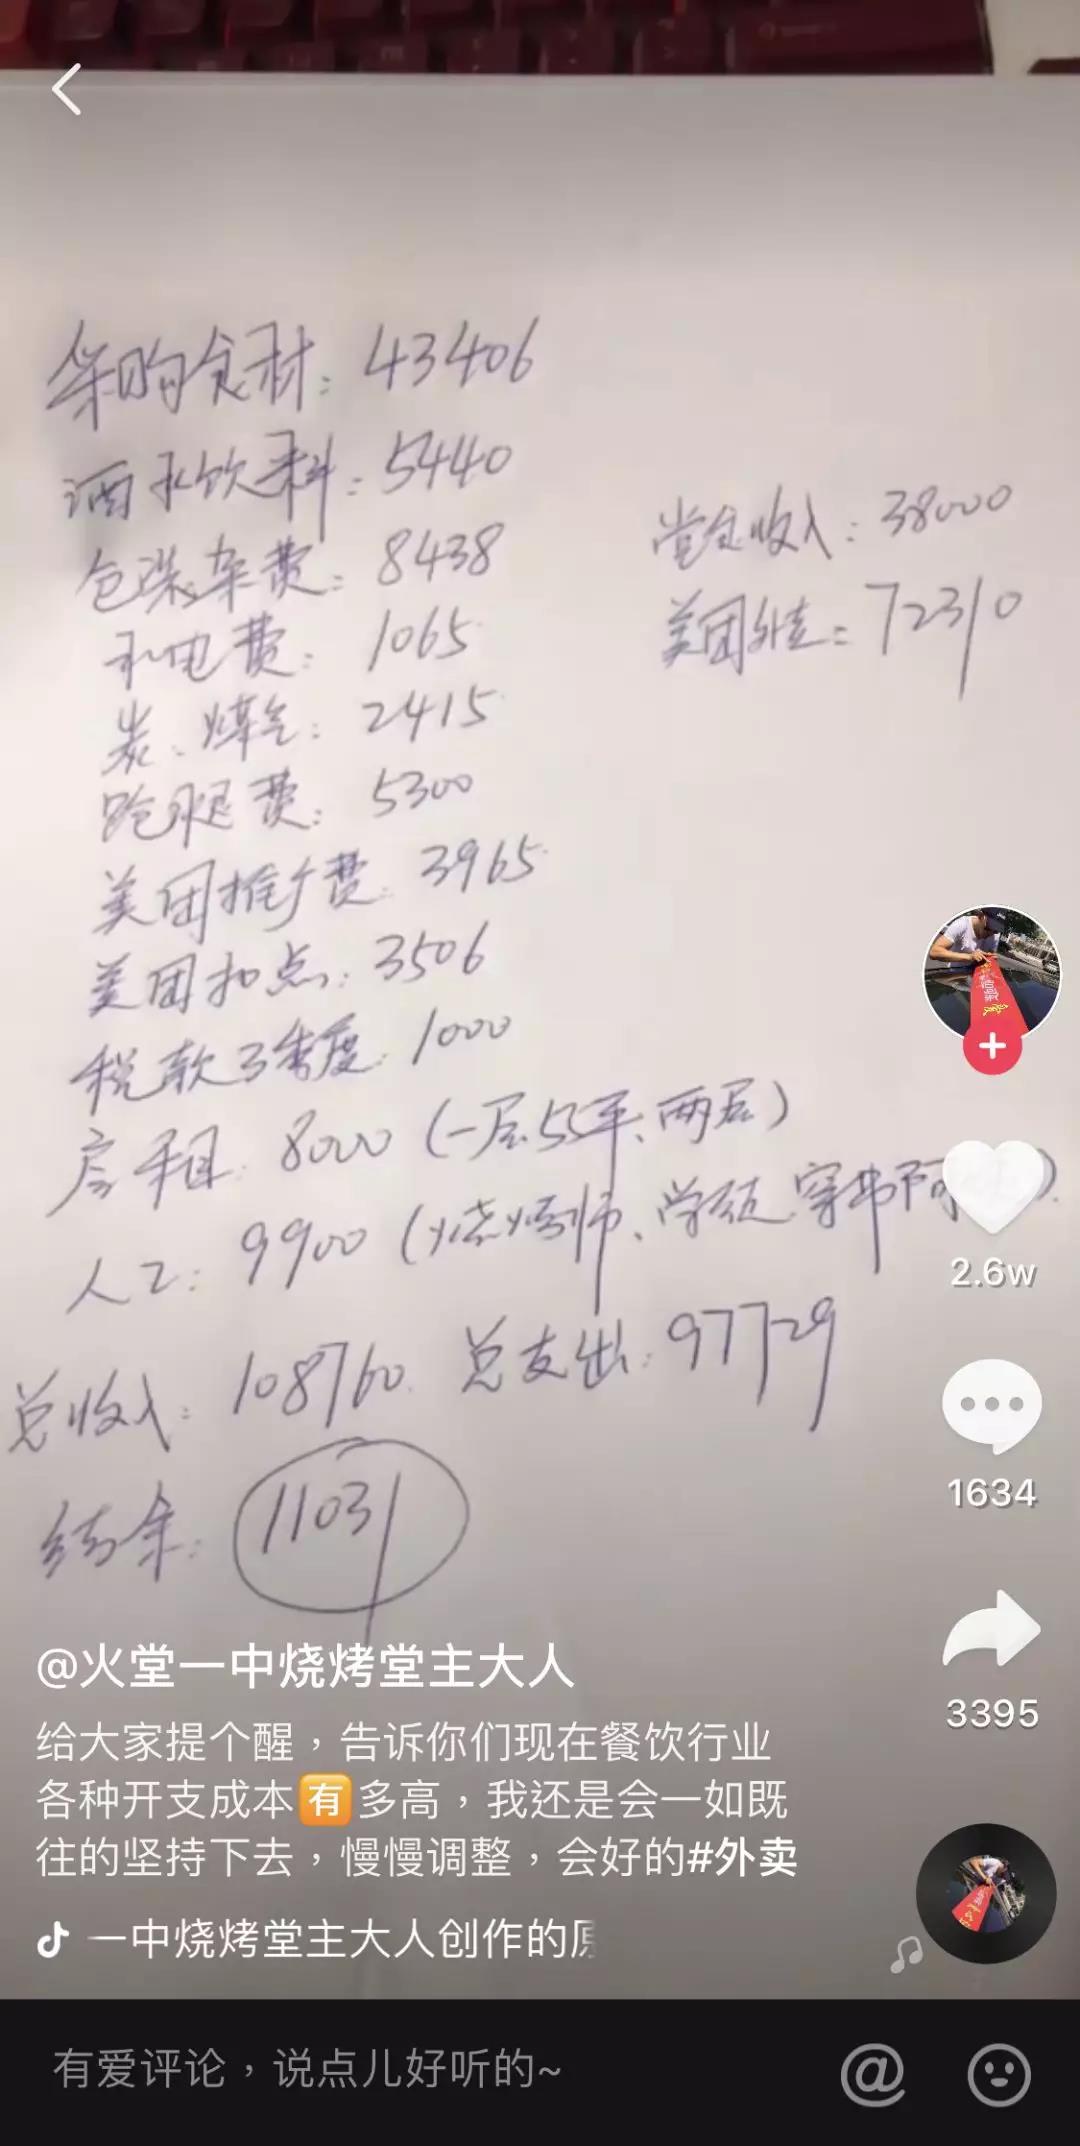 采购食材：43406
酒水饮料：5440
包装杂费：8438
水电费：1065
炭、煤气：2415
跑腿费：5300
美团推广费：3965
美团扣点：3506
税款季度：1000
房租：8000（一层55平、两层）
人工：9900（烧烤师、学徒、穿串阿）
堂食收入：38000
美团外卖：72310
总收入：108760. 总支出：97729
结余：11031
@火堂一中烧烤堂主大人
给大家提个醒，告诉你们现在餐饮行业
各种开支成本🈶多高，我还是会一如既
往的坚持下去，慢慢调整，会好的#外卖
一中烧烤堂主大人创作的原
2.6w
1634
3395
有爱评论，说点儿好听的~